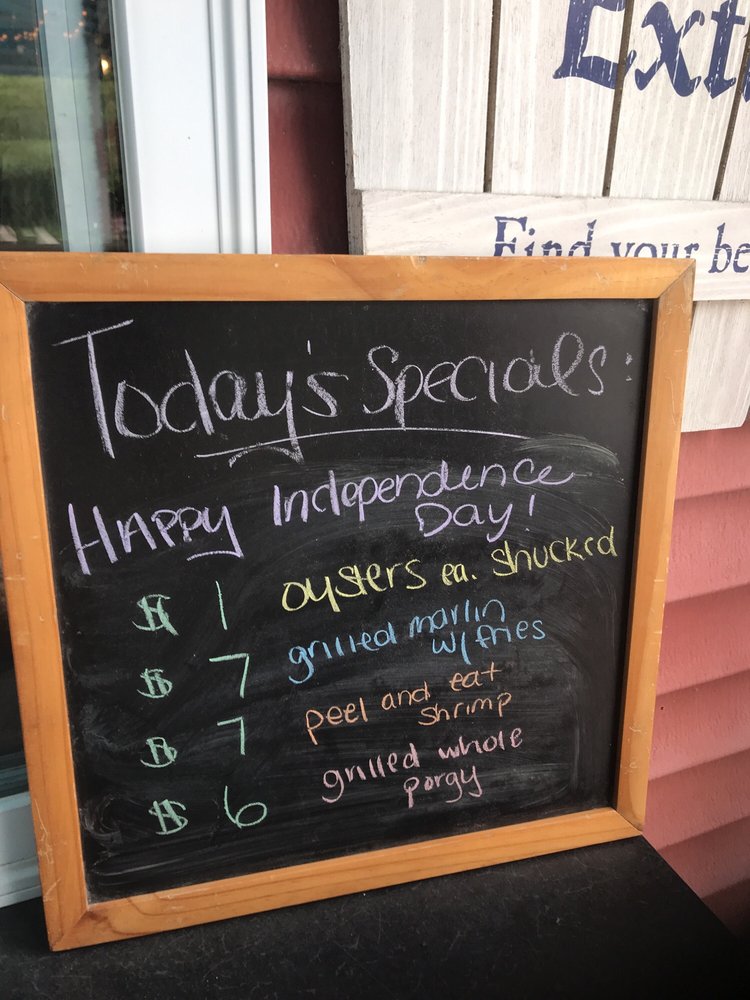 Ext
Find your be
Today's Specials:
HAPPY Independence
Day!
$ 1 oysters ea. shucked
$ 7 grilled marlin
w/ fries
$ 7 peel and eat
shrimp
$ 6 grilled whole
porgy